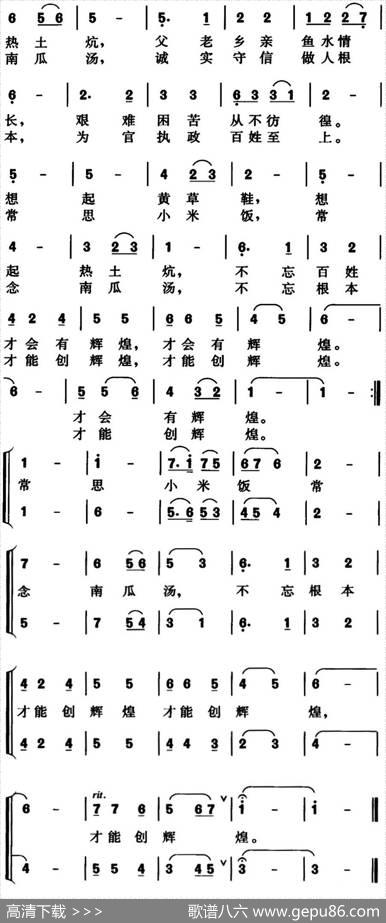 6 5 6 | 5 - | 5. 1 | 2 2 | 1 2 2 7 |
热土炕，父老乡亲鱼水情
南瓜汤，诚实守信做人根
6 - | 2. 2 | 3 3 | 6 3 3 1 | 2 - |
长，艰难困苦从不彷徨。
本，为官执政百姓至上。
5 - | 5 - | 4 2 3 | 2 - | 5 - |
想起黄草鞋，想
常思小米饭，常
4 - | 3 2 3 | 1 - | 6. 1 | 3 2 |
起热土炕，不忘百姓
念南瓜汤，不忘根本
4 2 4 | 5 5 | 6 6 5 | 4 5 | 6 - |
才会有辉煌，才会有辉煌。
才能创辉煌，才能创辉煌。
6 - | 5 5 6 | 4 3 2 | 1 - | 1 - :||
才会有辉煌。
才能创辉煌。
1 - | i - | 7. i 7 5 | 6 7 6 | 2 - |
常思小米饭常
1 - | 6 - | 5. 6 5 3 | 4 5 4 | 2 - |
7 - | 6 5 6 | 5 3 | 6. 1 | 3 2 |
念南瓜汤，不忘根本
5 - | 7 5 4 | 3 1 | 6. 1 | 3 2 |
4 2 4 | 5 5 | 6 6 5 | 4 5 | 6 - |
才能创辉煌才能创辉煌，
4 2 4 | 5 5 | 4 4 3 | 2 3 | 4 - |
rit.
6 - | 7 7 6 | 5 6 7 ∨ | i - | i - ||
才能创辉煌。
4 - | 5 5 4 | 3 4 5 ∨ | 3 - | 3 - ||
高清下载 >>>
歌谱八六 www.gepu86.com